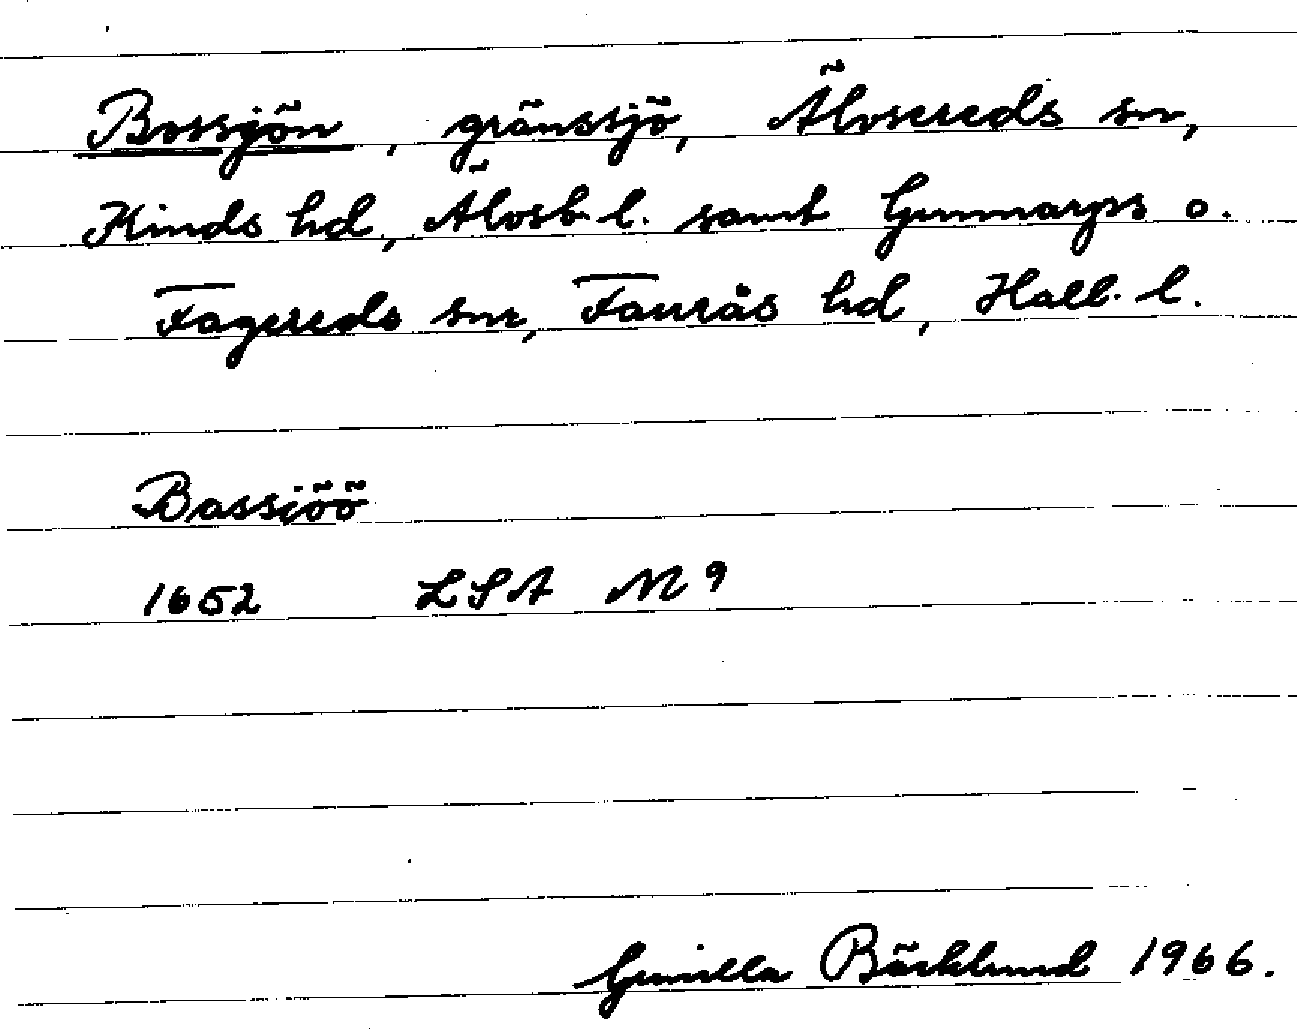 Bossjön, gränssjö, Älvsereds sn,
Kinds hd, Älvsb. l. samt Gunnarps o.
Fagereds snr, Faurås hd, Hall. l.
Bassiöö
1652 LSA M 9
Gunilla Bäcklund 1966.